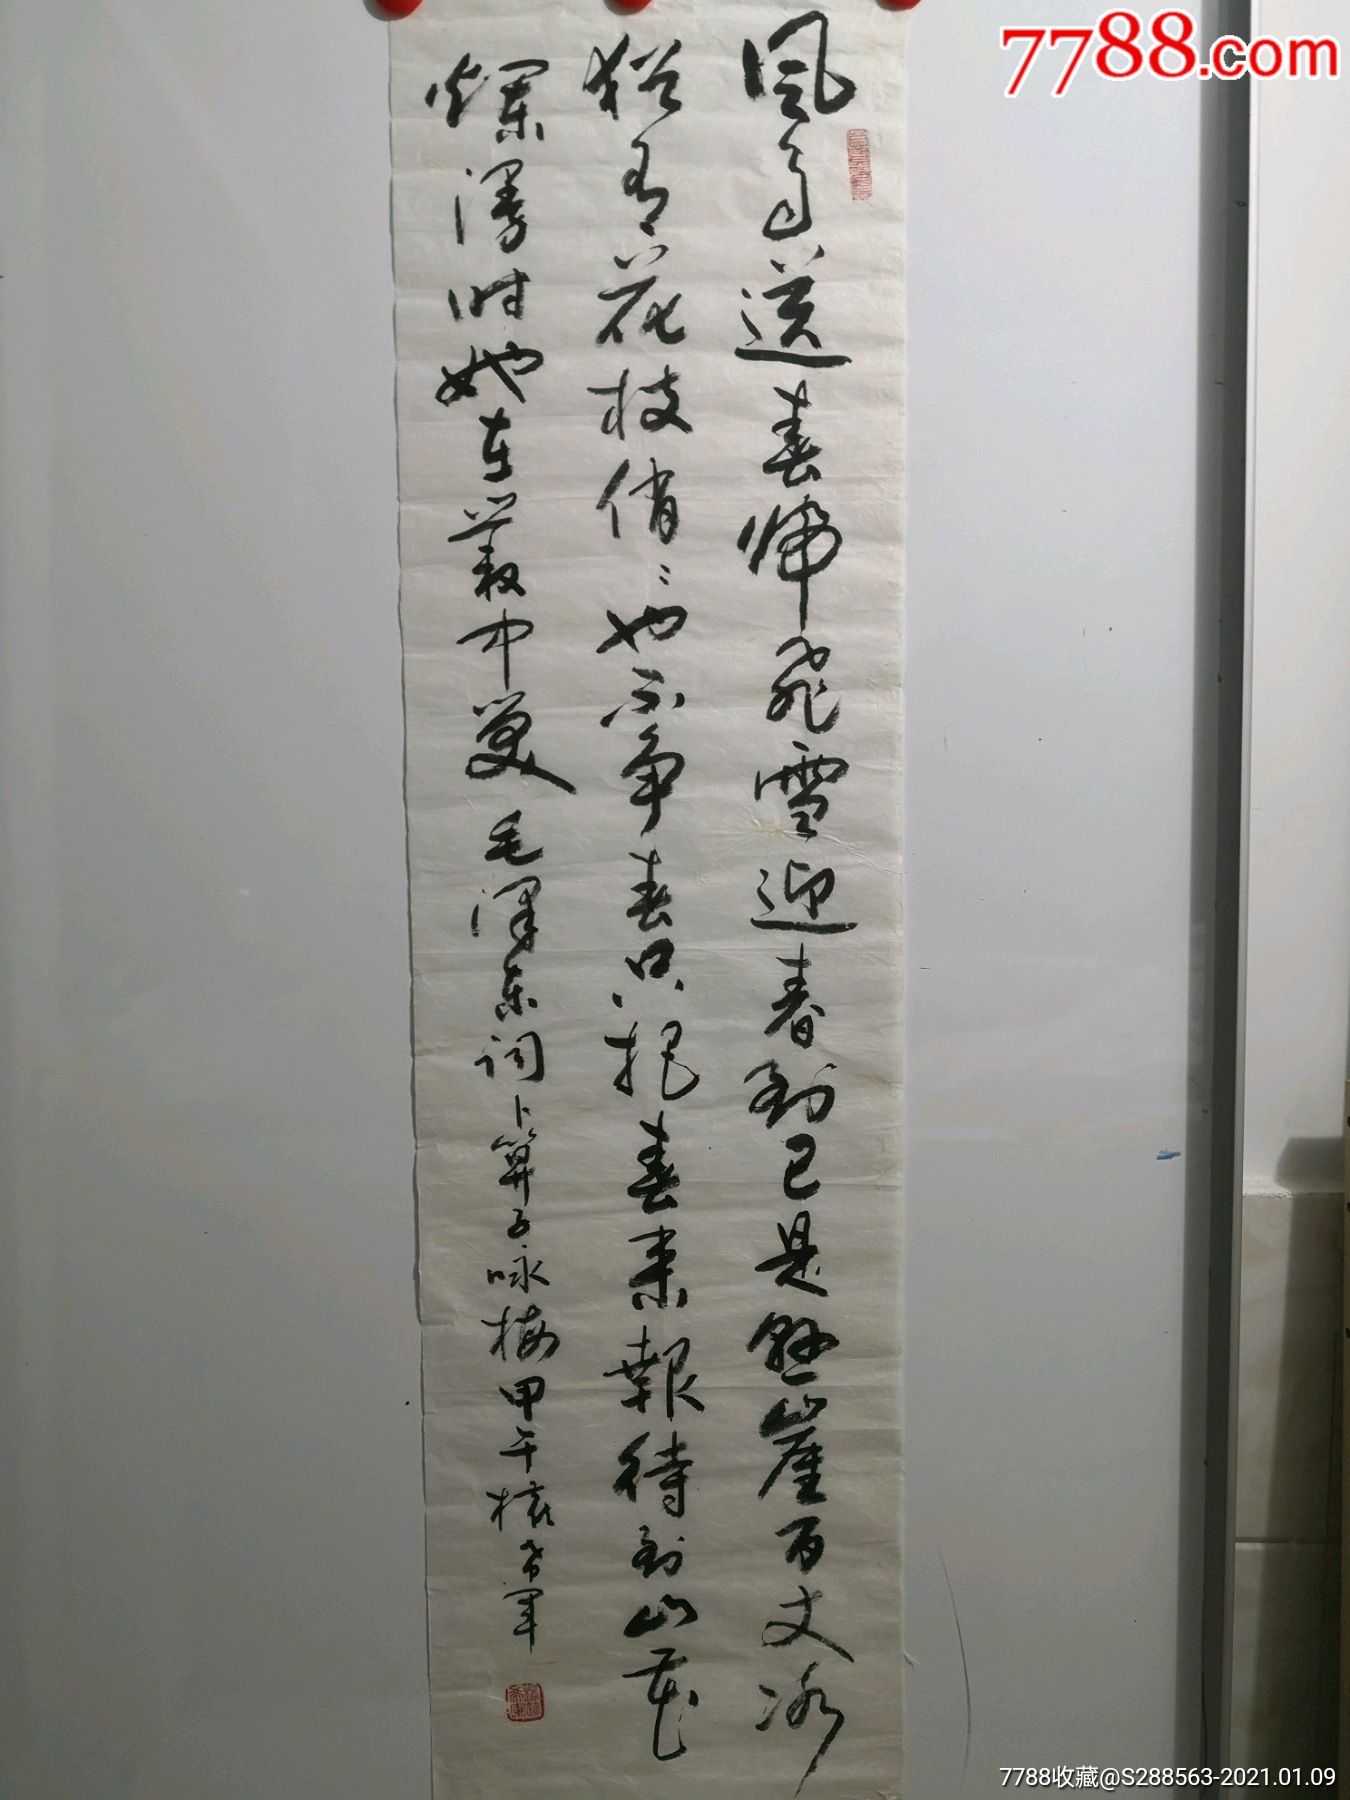 7788.com
風雨送春歸飛雪迎春到已是懸崖百丈冰
猶有花枝俏〻也不争春只把春来報待到山花
爛漫时她在叢中笑毛澤东词卜算子咏梅甲午希军
7788收藏@S288563-2021.01.09